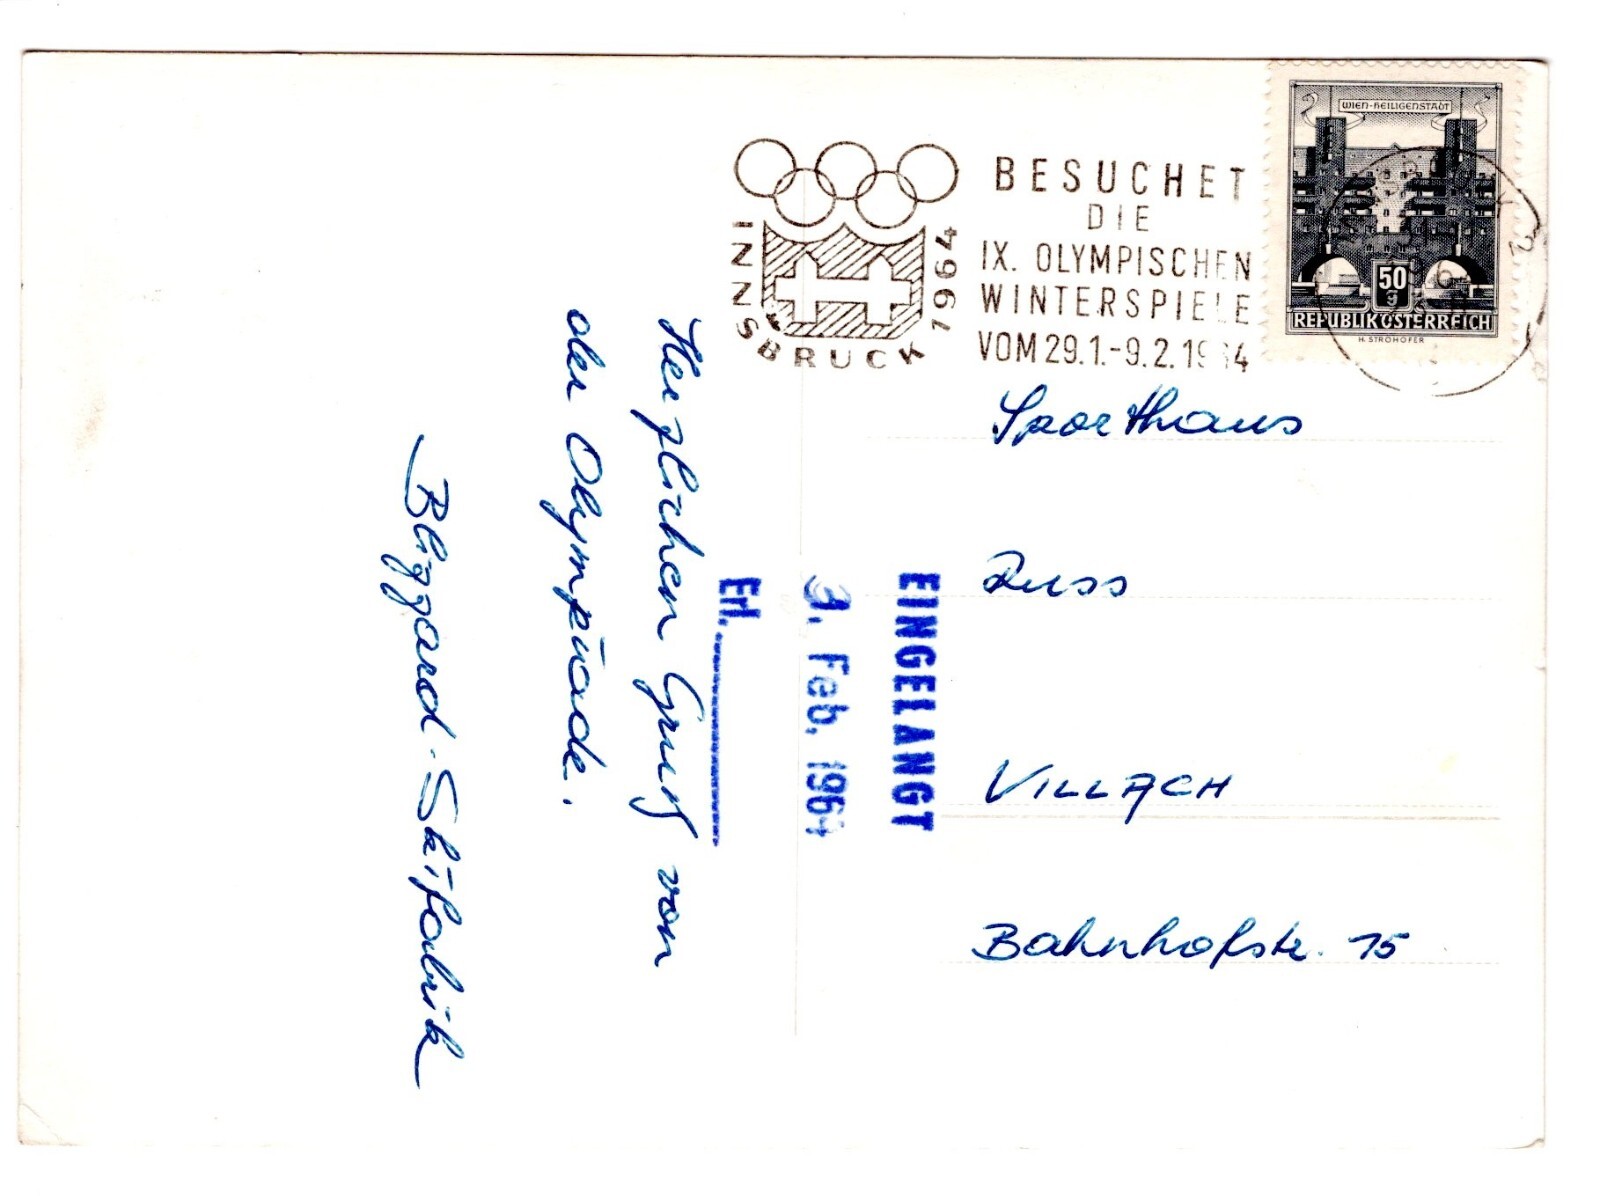 INNSBRUCK 1964
BESUCHET
DIE
IX. OLYMPISCHEN
WINTERSPIELE
VOM 29.1.-9.2.1964
WIEN-HEILIGENSTADT
50
g
REPUBLIK ÖSTERREICH
H. STROHOFER
Sporthaus
Russ
VILLACH
Bahnhofstr. 15
EINGELANGT
3. Feb. 1964
Erl.
Herzlichen Gruß von
der Olympiade.
Blizzard-Skifabrik